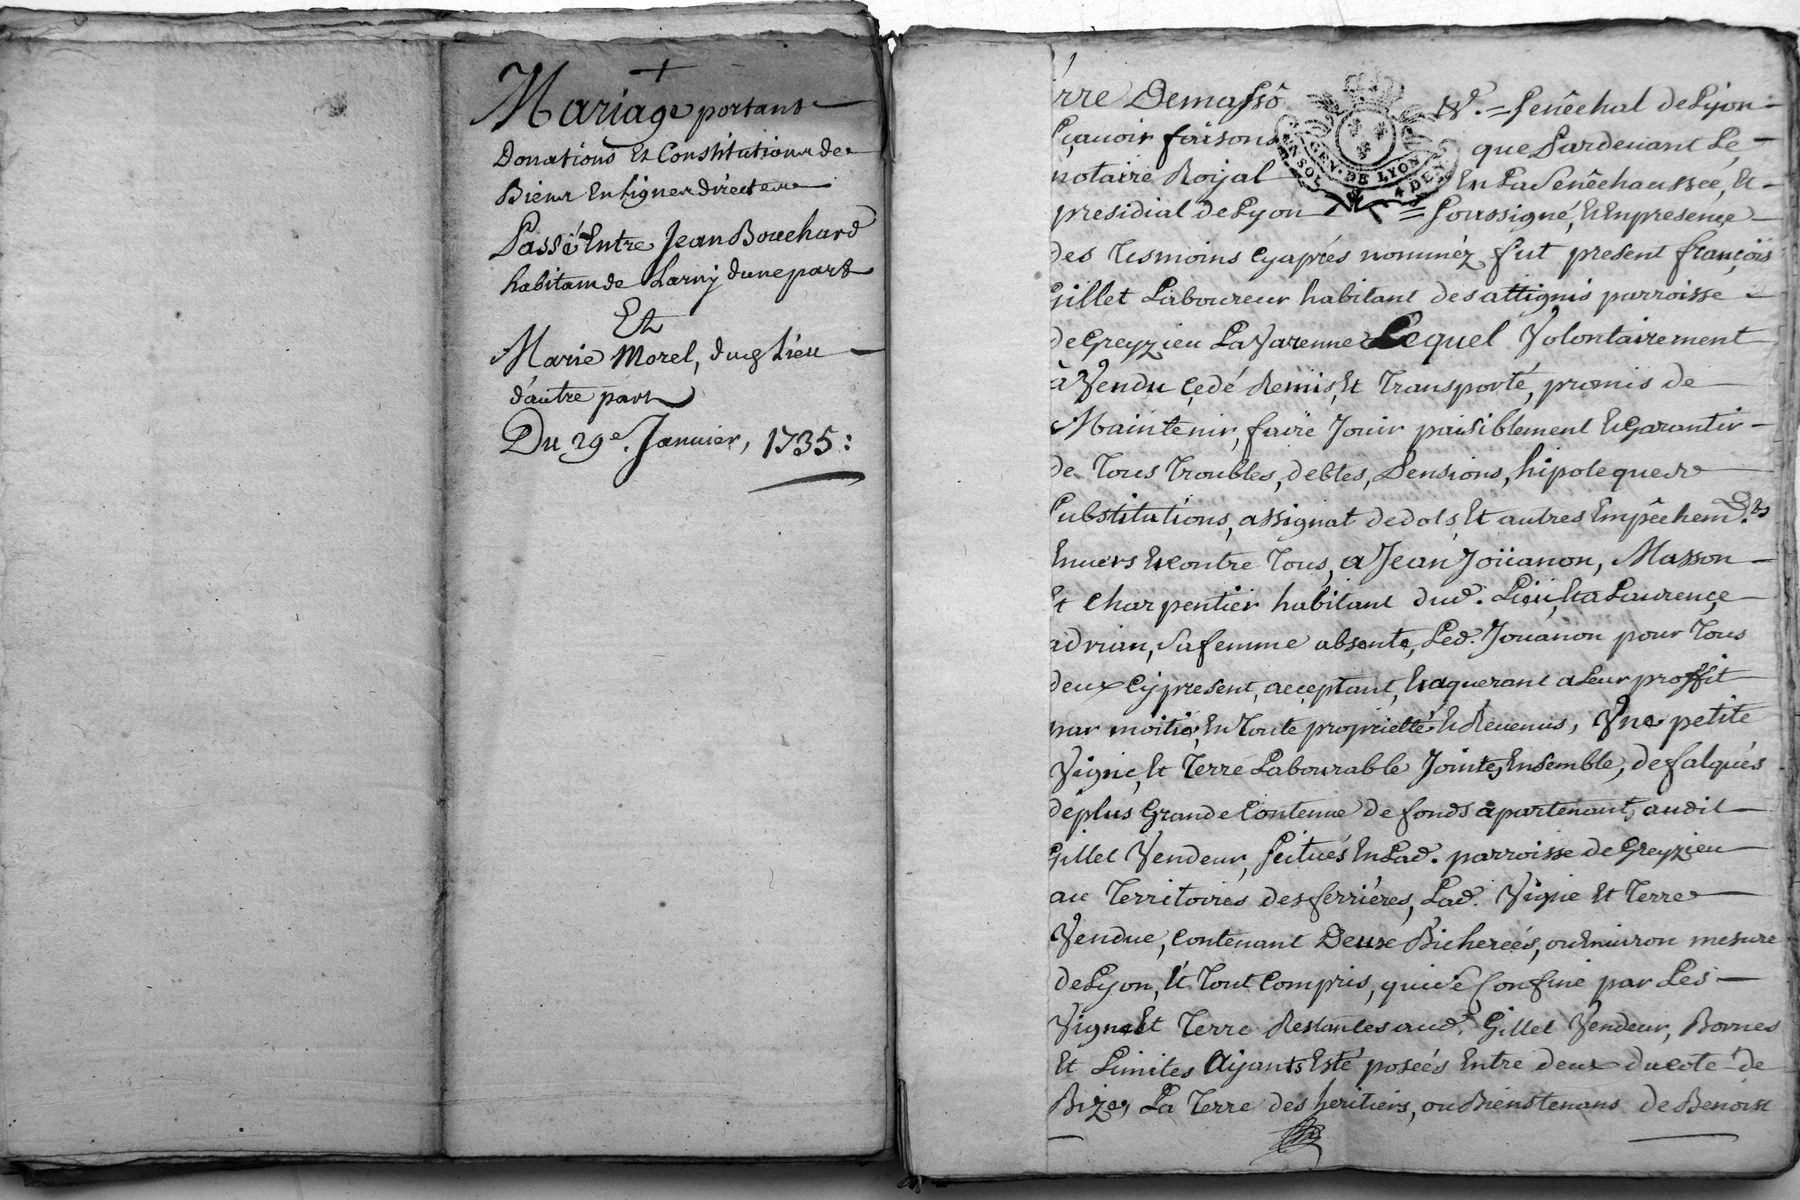 +
Mariage portant
Donations Et Constitutions de
Biens En Lignes directes
Passé Entre Jean Bouchard
habitan de Larny dune part
Et
Marie Morel, dud Lieu
d'autre part
Du 29e. Janvier, 1735:
rre Demasso Senêchal de Lyon
Sçavoir faisons que Pardevant Le
notaire Roÿal En La Senêchaussée, Et
presidial de Lyon = Soussigné, Et En presençe
des Tesmoins cy aprés nommêz fut present françois
Gillet Laboureur habitant des attignis parroisse
de Greyzieu La Varenne Lequel Volontairement
à Vendu çedé Remis, Et Transporté, promis de
Maintenir, faire Jouir paisiblement Et Garantir
de Tous Troubles, debtes, Pensions, hipoteques
Substitutions, assignat de dots, Et autres Empêchemts
Envers Et Contre Tous, a Jean Joüanon, Masson
Et Charpentier habitant dud. Lieu, Et a Laurençe
adrian, Sa femme absente, Led. Jouanon pour Tous
deux Cy present, acçeptant, Et aquerant a Leur proffit
par moitié, En Toute proprietté Et Revenus, Vne petite
Vigne, Et Terre Labourable Jointes Ensemble, defalqués
de plus Grande Contenue de fonds apartenant, audit
Gillet Vendeur, Scitués En Lad. parroisse de Greyzieu
au Territoires des ferriéres, Lad. Vigne Et Terre
Vendue, Contenant Deux Bicherées, ou Environ mesure
de Lyon, Et Tout Compris, qui Se Confine par Les
Vigne Et Terre Restantes aud. Gillet Vendeur, Bornes
Et Limites Aÿants Esté posées Entre deux du coté de
Bize, La Terre des heritiers, ou Bienstenans de Benoist
GEN. DE LYON